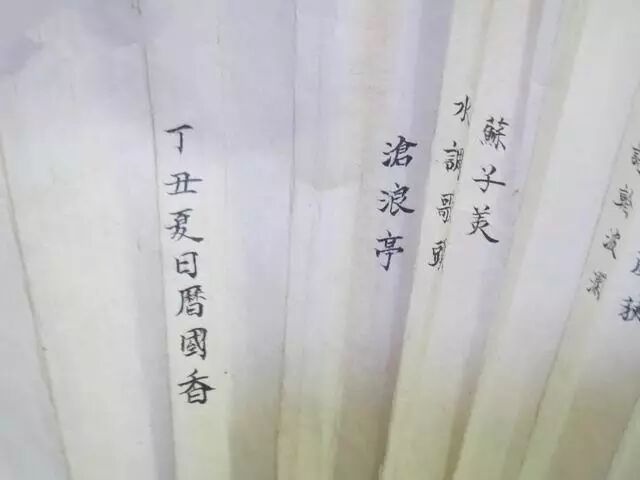 蘇子美
水調歌頭
滄浪亭
丁丑夏日曆國香